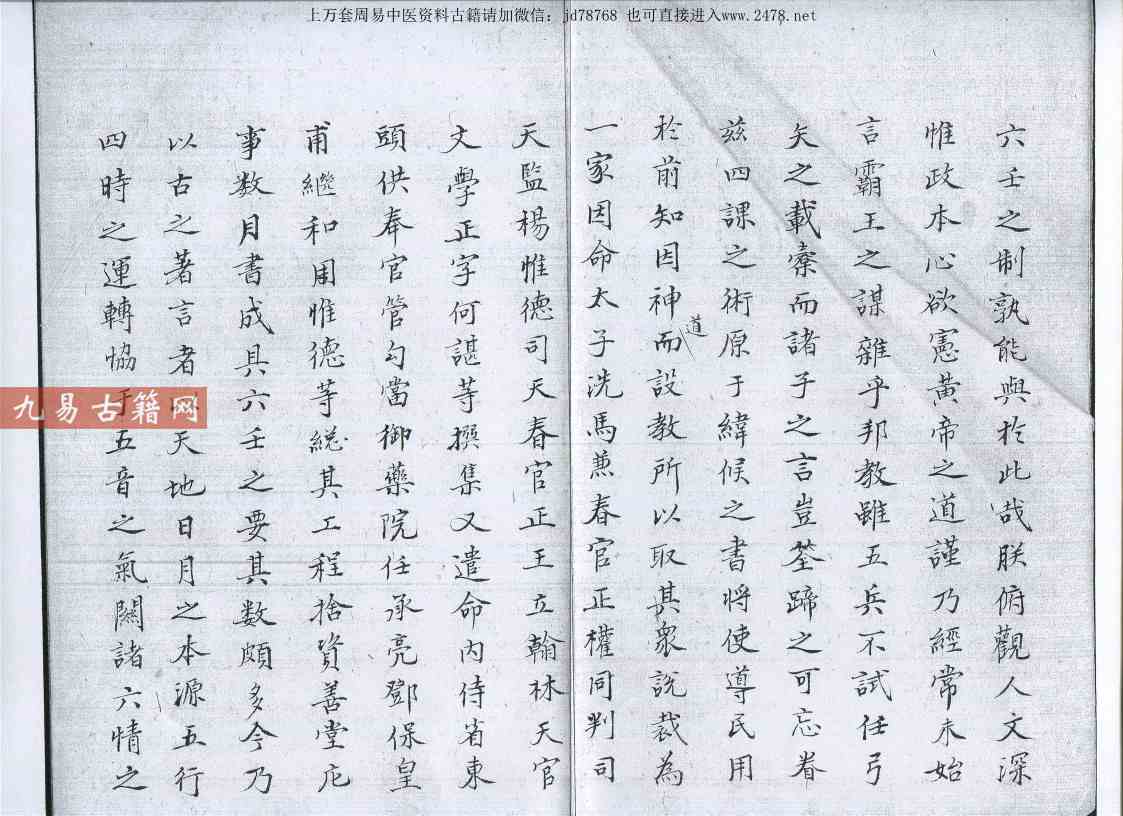 上万套周易中医资料古籍请加微信：jd78768 也可直接进入www.2478.net
六壬之制孰能與於此哉朕俯觀人文深
惟政本心欲憲黃帝之道謹乃經常未始
言霸王之謀雜乎邦教雖五兵不試任弓
矢之載櫜而諸子之言豈筌蹄之可忘眷
兹四課之術原于緯候之書將使導民用
於前知因神道而設教所以取其衆說裁為
一家因命太子洗馬兼春官正權同判司
天監楊惟德司天春官正王立翰林天官
文學正字何諶等撰集又遣命内侍省東
頭供奉官管勾當御藥院任承亮鄧保皇
甫繼和用惟德等総其工程捨資善堂庀
事数月書成具六壬之要其数頗多今乃
以古之著言者天地日月之本源五行
四時之運轉恊于五音之氣關諸六情之
九易古籍网